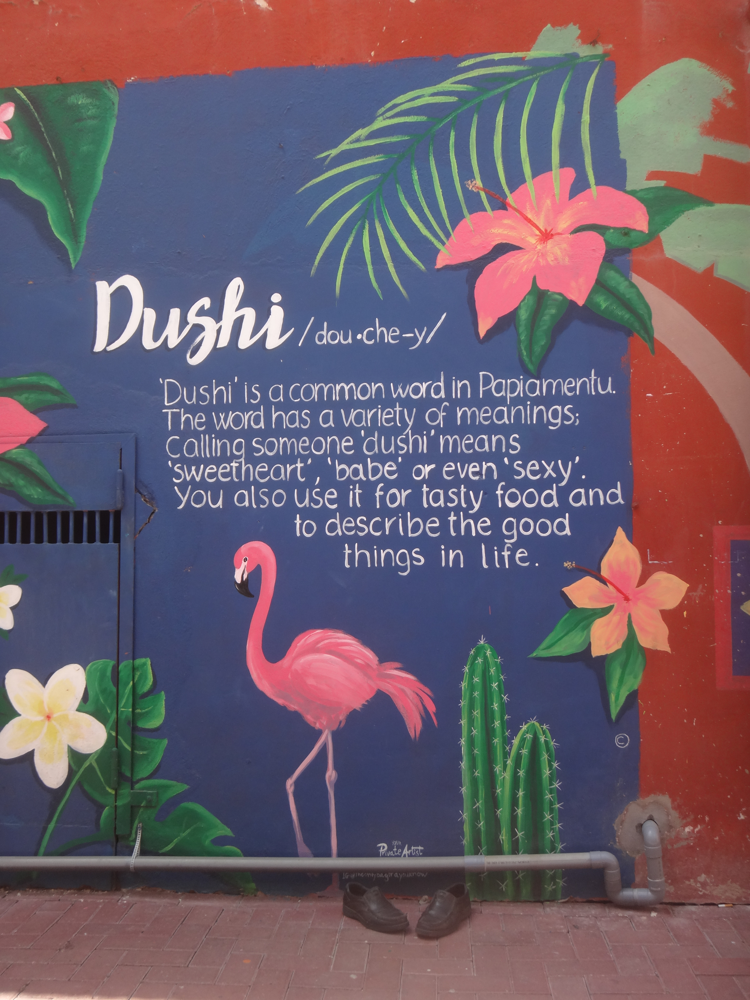 Dushi /dou·che-y/
'Dushi' is a common word in Papiamentu.
The word has a variety of meanings;
Calling someone 'dushi' means
'sweetheart', 'babe' or even 'sexy'.
You also use it for tasty food and
to describe the good
things in life.
©
Private Artist